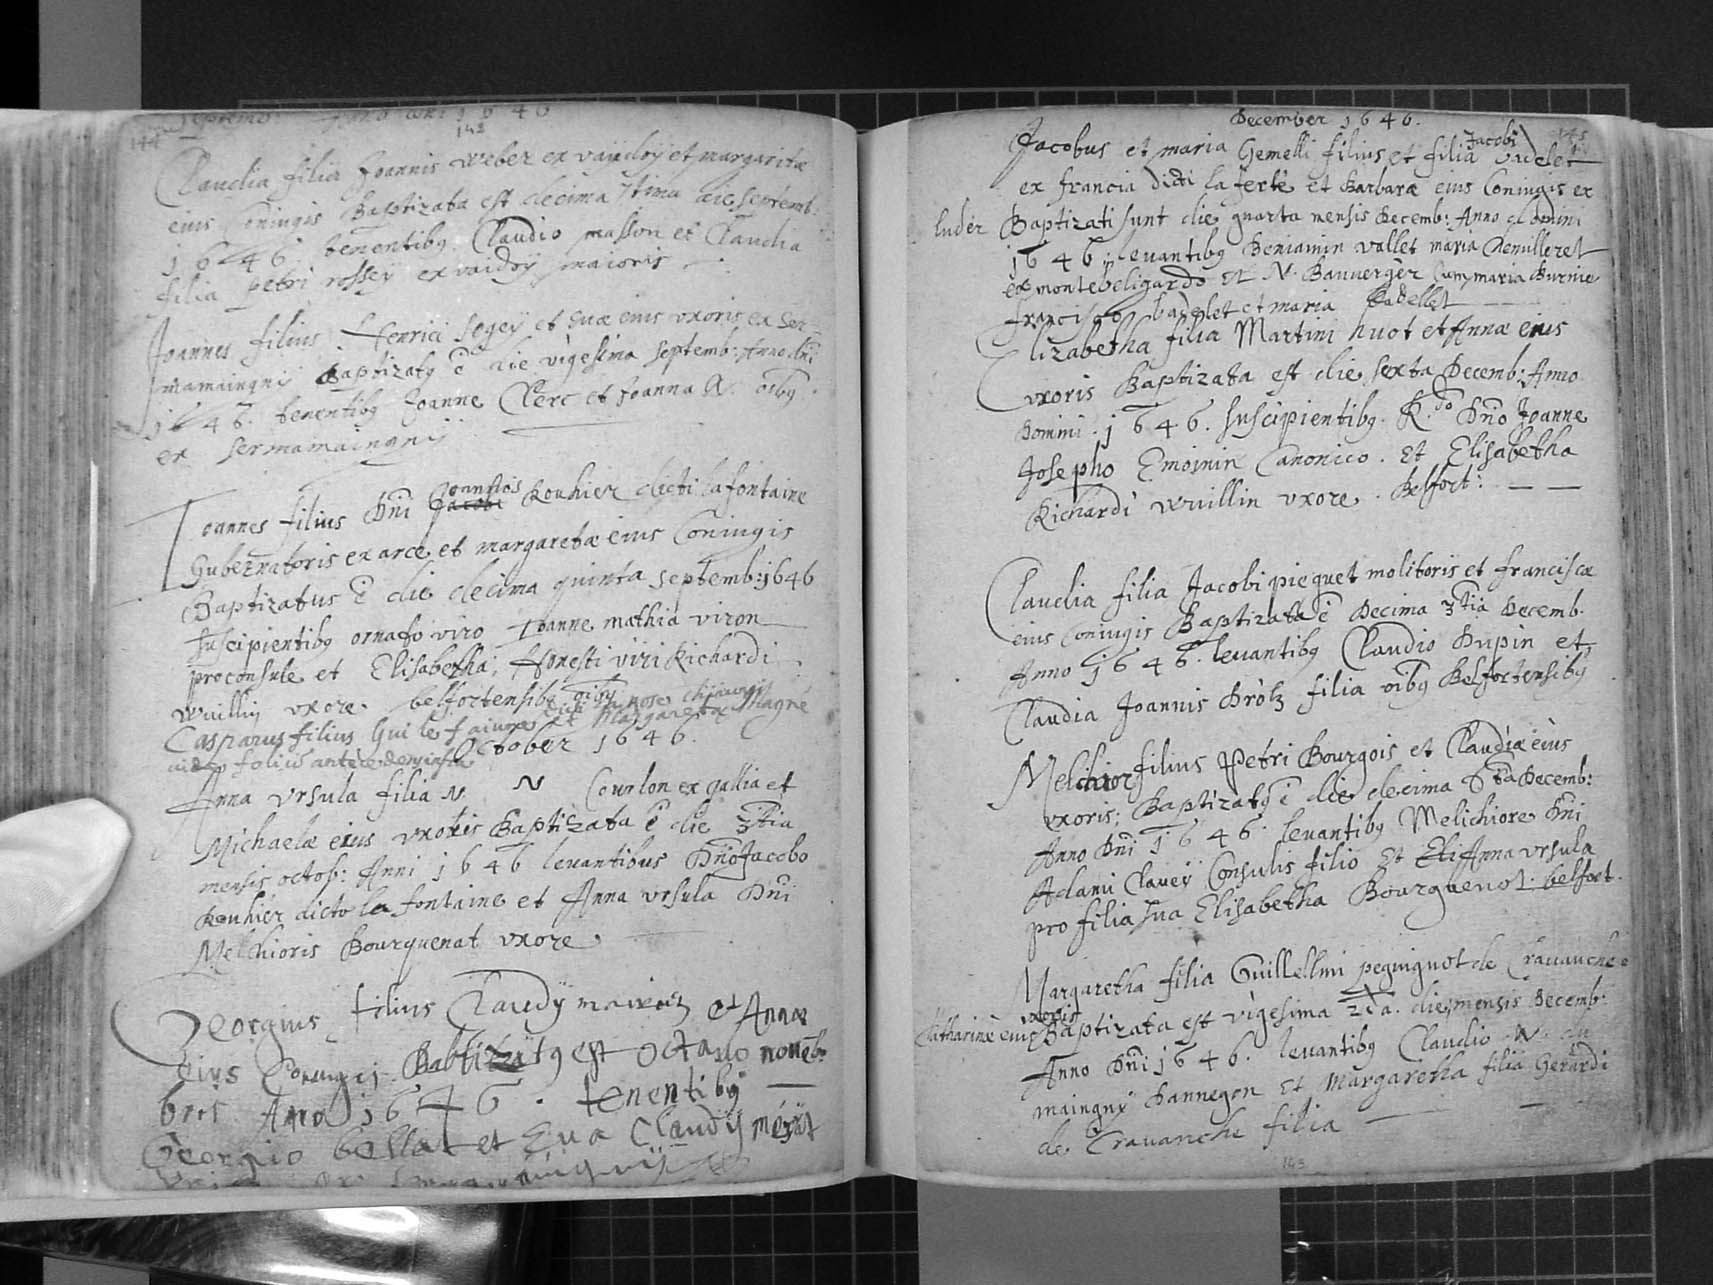 144
Septemb: Anno dni 1646
142
Claudia filia Joannis weber ex vaydoy et margaritæ
eius Coniugis Baptizata est decima 7tima die septemb:
1646. tenentibq Claudio masson et Claudia
filia petri rossey ex vaidoy maioris
Joannes filius Henrici sogey et suæ eius uxoris ex ser-
mamaingny Baptizatq ē die vigesima septemb: Anno dni
1646. tenentibq Joanne Clerc et Joanna N. oibq
ex sermamaingny
Ioannes filius Dni Joannis Rouhier dicti la fontaine
Gubernatoris ex arce et margaretæ eius Coniugis
Baptizatus ē die decima quinta septemb: 1646
suscipientibq ornato viro Ioanne mathia viron
proconsule et Elisabetha, Honesti viri Richardi
wuillin uxore. belfortensibq oibq
Casparus filius Gui le faiure et Margaretæ Magné
vide folio
October 1646.
Anna ursula filia N. N Courlon ex gallia et
Michaelæ eius uxoris Baptizata ē die 3tia
mensis octob: Anni 1646 levantibus Dno Jacobo
Rouhier dicto la fontaine et Anna ursula Dni
Melchioris Bourquenat uxore
Georgius filius Claudy mairoz et Annæ
eius Coniugis Babtizatq est octavo novēb-
bris Ano 1646. tenentibq
Georgio bellat et Eva Claudy
145
December 1646.
Jacobus et maria Gemelli filius et filia Jacobi vadelet
ex francia dicti la ferte et Barbaræ eius Coniugis ex
luder Baptizati sunt die quarta mensis Decemb: Anno domini
1646. levantibq Beniamin vallet maria
ex montebeligardo et N. Bauverger Cum maria Burnie
francisco badelet et maria badellet
Elizabetha filia Martini huot et Annæ eius
uxoris Baptizata est die sexta Decemb: Anno
Domini. 1646. suscipientibq. R.do Dno Joanne
Josepho Emoinin Canonico. Et Elisabetha
Richardi wuillin uxore. Belfort:
Claudia filia Jacobi pieguet molitoris et franciscæ
eius Coniugis Baptizata ē Decima 3tia Decemb.
Anno 1646. levantibq Claudio Dupin et
Claudia Joannis Drolz filia oibq Belfortensibq
Melchior filius Petri Bourgois et Claudiæ eius
uxoris, Baptizatq ē die decima 6ta Decemb:
Anno Dni 1646. levantibq Melichiore Dni
Adami Clavey Consulis filio Et Anna ursula
pro filia sua Elisabetha Bourquenot. belfort.
Margaretha filia Guillelmi peguignot de Cravanche
Catharine eius uxoris Baptizata est vigesima 2da. die mensis Decemb:
Anno Dni 1646. levantibq Claudio N. du
maingny Dannegon et Margaretha filia Gerardi
de Cravanche filia
143